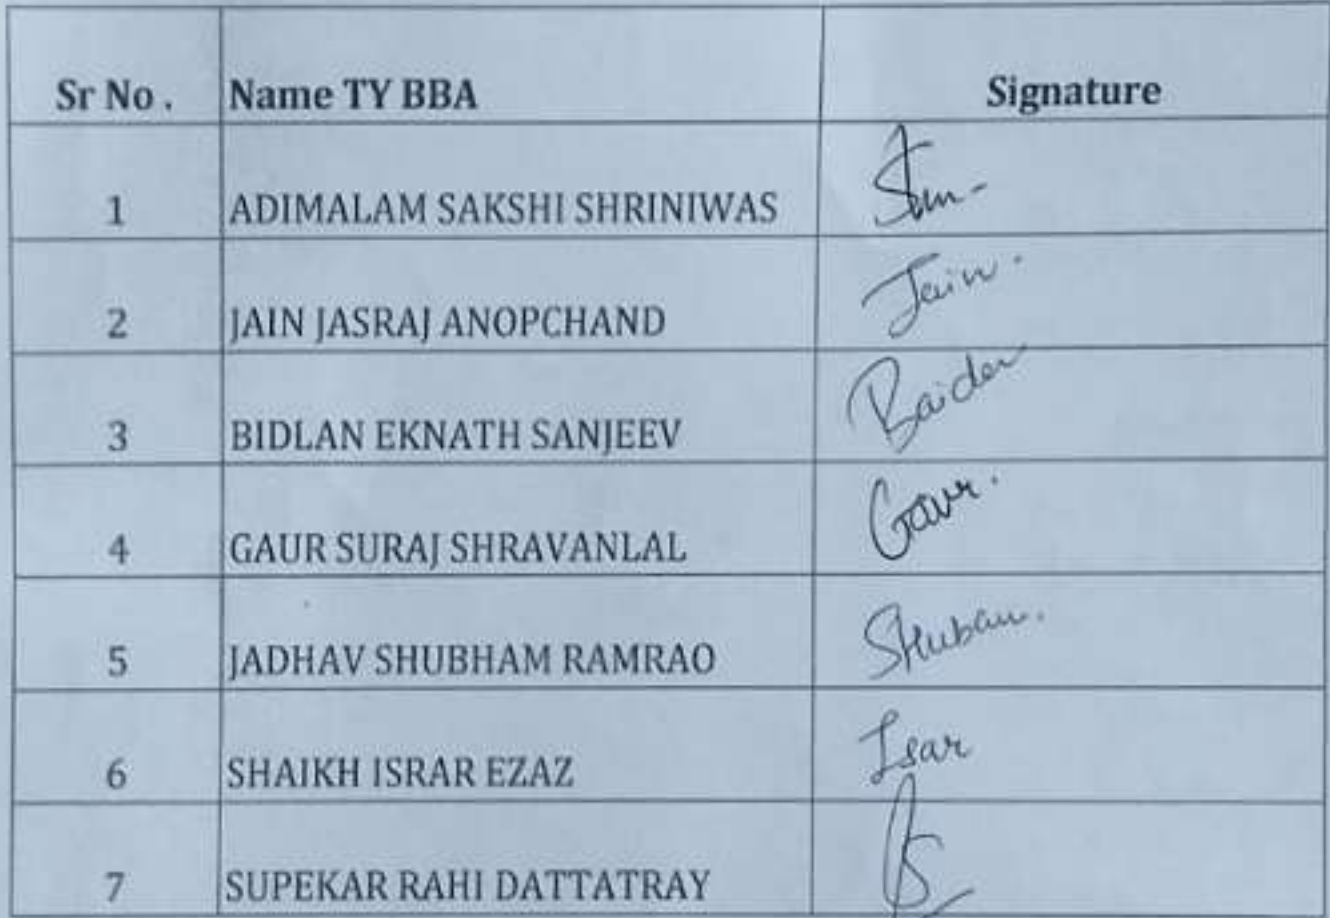 Sr No . Name TY BBA Signature
1 ADIMALAM SAKSHI SHRINIWAS
2 JAIN JASRAJ ANOPCHAND Jain.
3 BIDLAN EKNATH SANJEEV
4 GAUR SURAJ SHRAVANLAL Gaur.
5 JADHAV SHUBHAM RAMRAO
6 SHAIKH ISRAR EZAZ Isar
7 SUPEKAR RAHI DATTATRAY